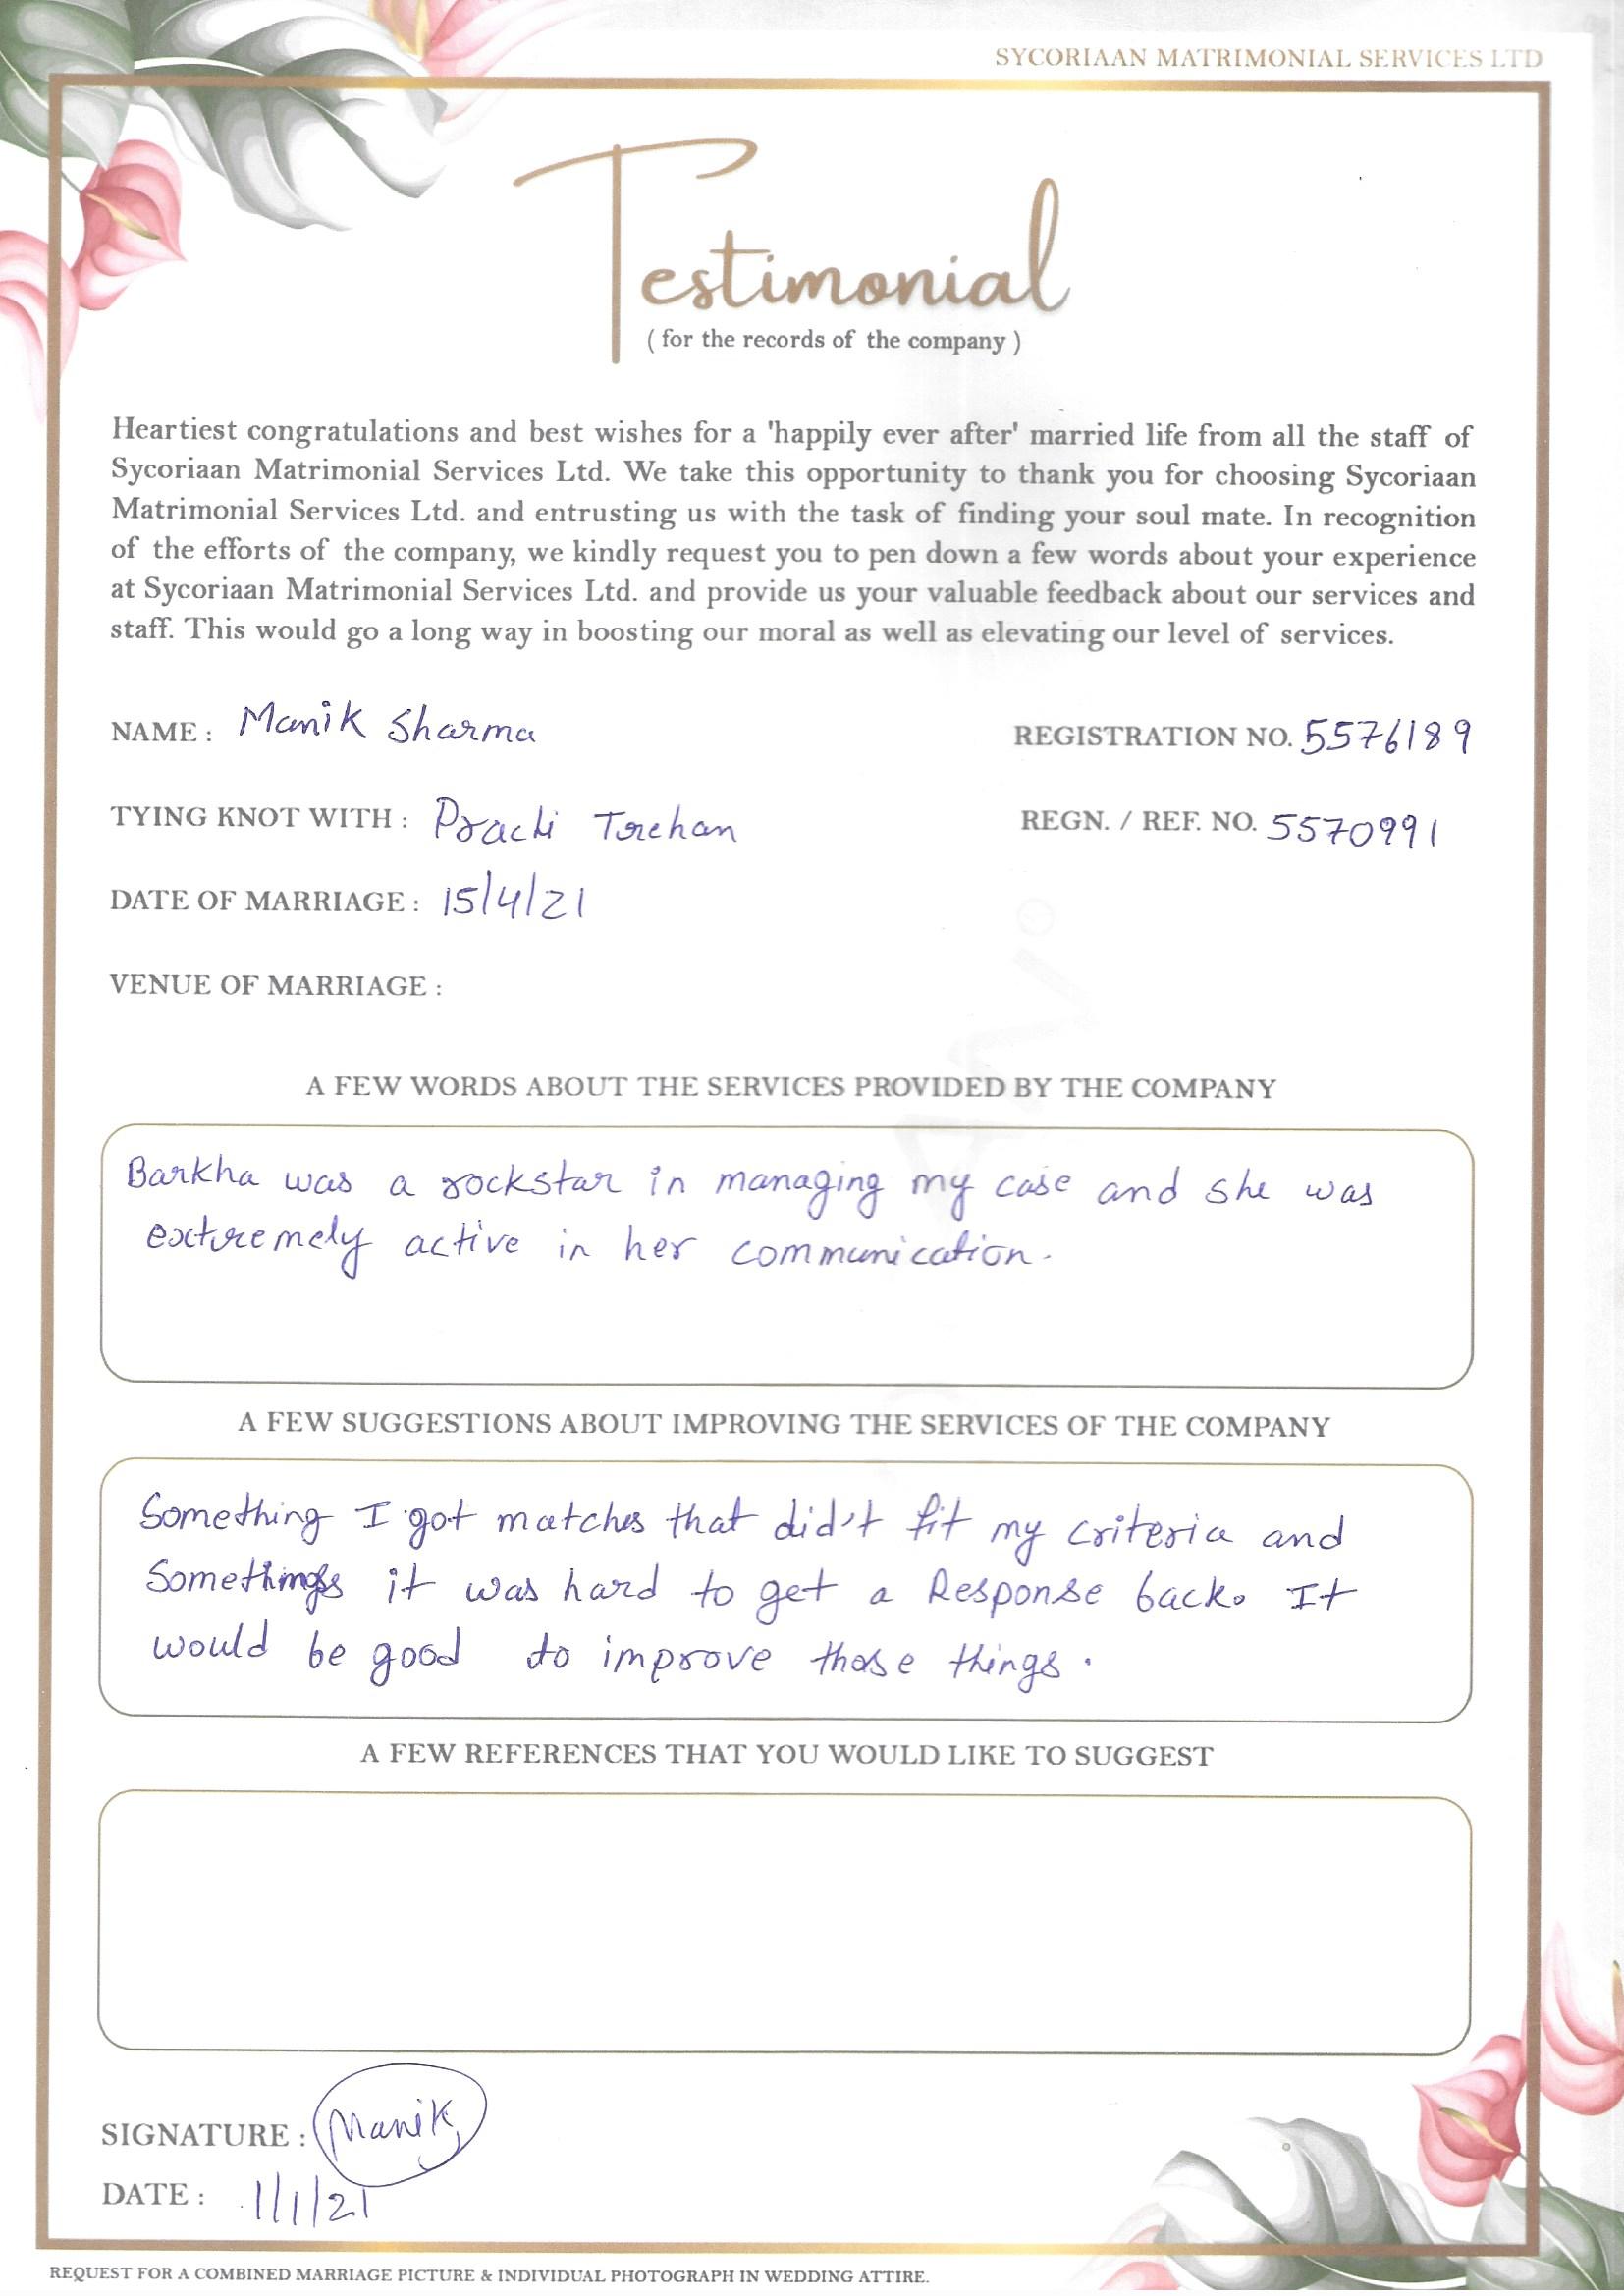 SYCORIAAN MATRIMONIAL SERVICES LTD
Testimonial
( for the records of the company )
Heartiest congratulations and best wishes for a 'happily ever after' married life from all the staff of
Sycoriaan Matrimonial Services Ltd. We take this opportunity to thank you for choosing Sycoriaan
Matrimonial Services Ltd. and entrusting us with the task of finding your soul mate. In recognition
of the efforts of the company, we kindly request you to pen down a few words about your experience
at Sycoriaan Matrimonial Services Ltd. and provide us your valuable feedback about our services and
staff. This would go a long way in boosting our moral as well as elevating our level of services.
NAME : Manik Sharma REGISTRATION NO. 5576189
TYING KNOT WITH : Prachi Trehan REGN. / REF. NO. 5570991
DATE OF MARRIAGE : 15/4/21
VENUE OF MARRIAGE :
A FEW WORDS ABOUT THE SERVICES PROVIDED BY THE COMPANY
Barkha was a rockstar in managing my case and she was
extremely active in her communication.
A FEW SUGGESTIONS ABOUT IMPROVING THE SERVICES OF THE COMPANY
Something I got matches that did't fit my criteria and
Somethings it was hard to get a Response back. It
would be good to improve those things.
A FEW REFERENCES THAT YOU WOULD LIKE TO SUGGEST
SIGNATURE : Manik
DATE : 1/1/21
REQUEST FOR A COMBINED MARRIAGE PICTURE & INDIVIDUAL PHOTOGRAPH IN WEDDING ATTIRE.